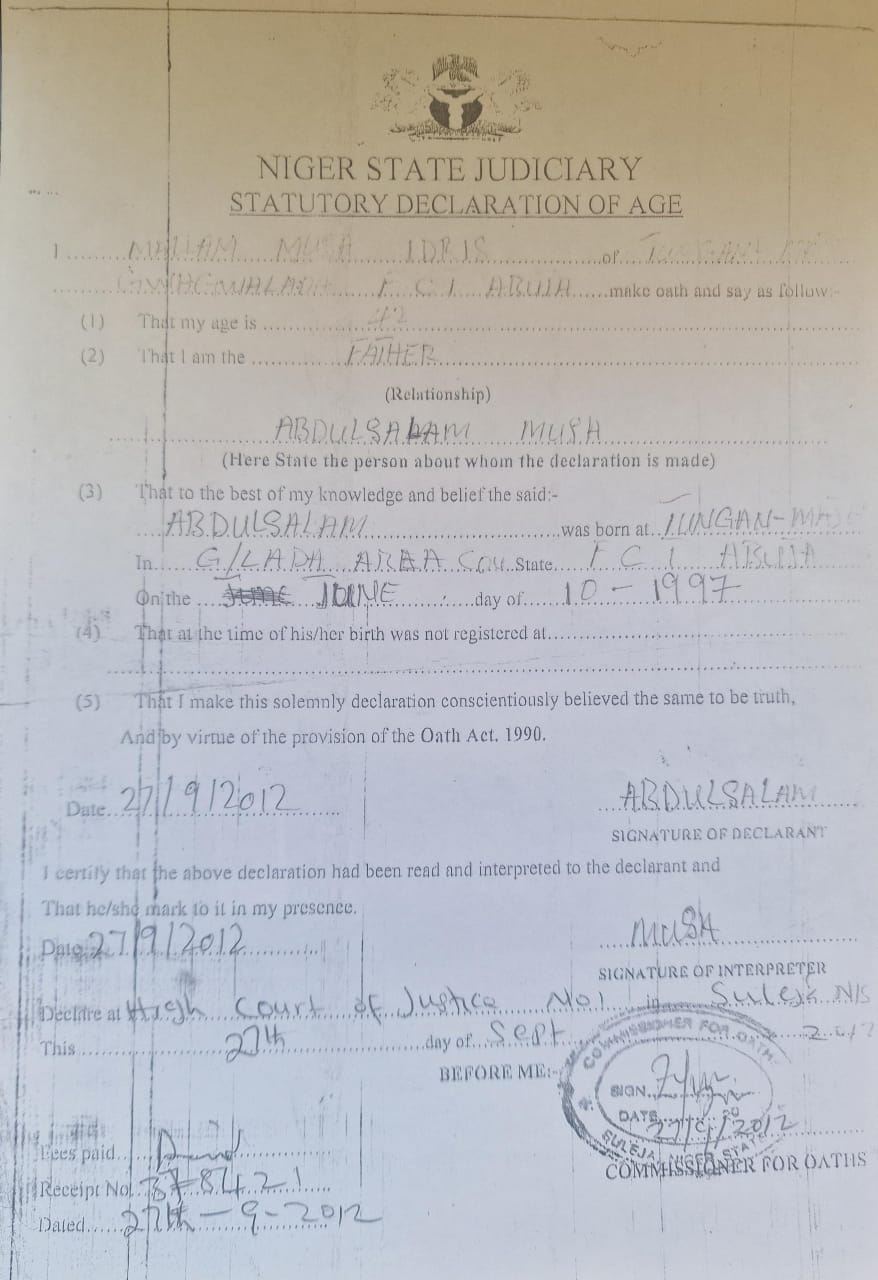 NIGER STATE JUDICIARY
STATUTORY DECLARATION OF AGE
I MALLAM MUSA IDRIS of TUNGAN
GWAGWALADA F C T ABUJA make oath and say as follow:-
(1) That my age is 42
(2) That I am the FATHER
(Relationship)
ABDULSALAM MUSA
(Here State the person about whom the declaration is made)
(3) That to the best of my knowledge and belief the said:-
ABDULSALAM was born at TUNGAN-MAJE
In G/LADA AREA COU State F C T ABUJA
On the day of 10-1997
(4) That at the time of his/her birth was not registered at
(5) That I make this solemnly declaration conscientiously believed the same to be truth,
And by virtue of the provision of the Oath Act. 1990.
Date 27/9/2012 ABDULSALAM
SIGNATURE OF DECLARANT
I certify that the above declaration had been read and interpreted to the declarant and
That he/she mark to it in my presence.
Date 27/9/2012 MUSA
SIGNATURE OF INTERPRETER
Declare at High Court of Justice No1 in Suleja N/S
This 27th day of Sept 2012
BEFORE ME:-
COMMISSIONER FOR OATH
SIGN.
DATE 27/9/2012
SULEJA, NIGER STATE
COMMISSIONER FOR OATHS
Fees paid
Receipt No. 8421
Dated 27th-9-2012